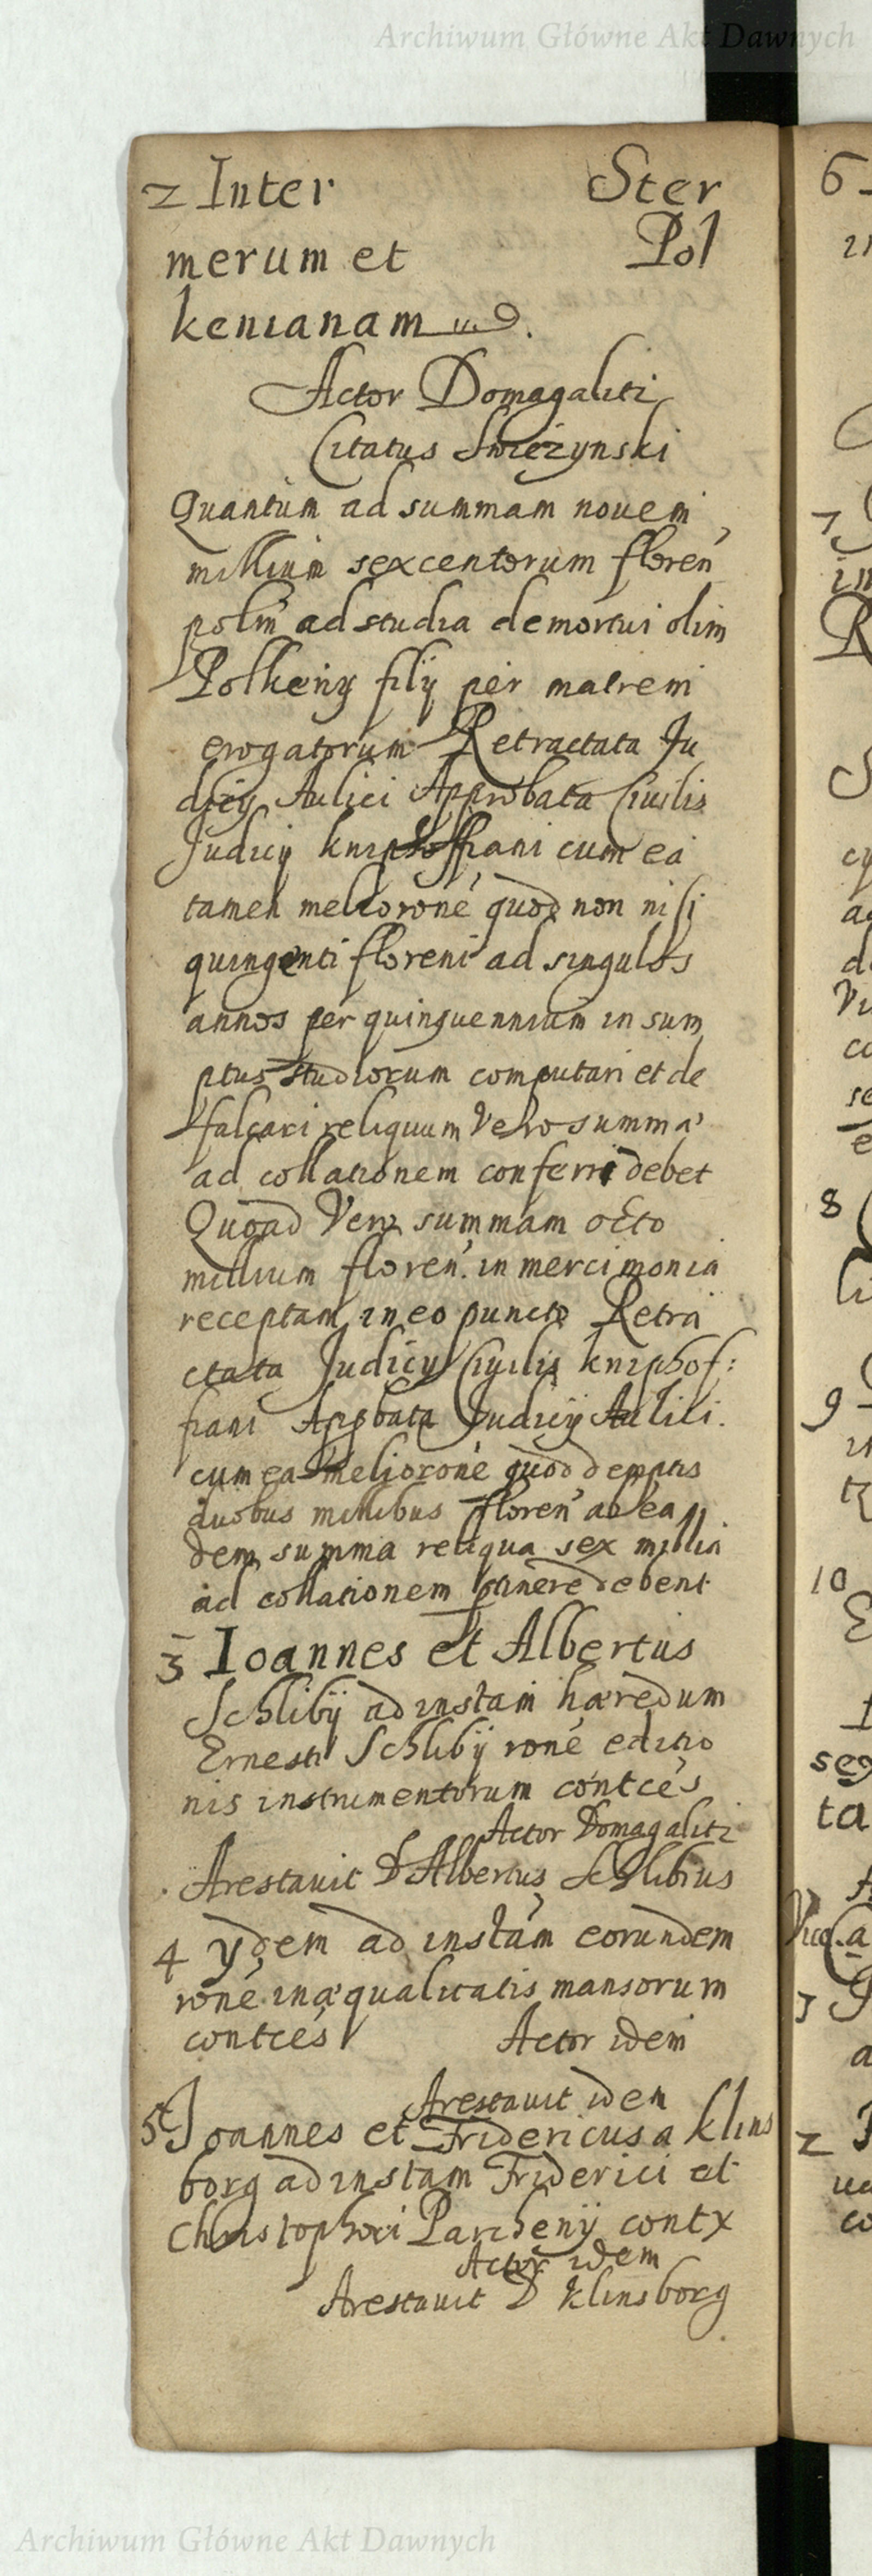 Archiwum Główne Akt Dawnych
2 Inter Ster
merum et Pol
kenianam
Actor Domagaliti
Citatus Swiezynski
Quantum ad summam novem
millium sexcentorum floren
polm ad studia demortui olim
Polkeny filij per matrem
erogatorum Retractata Ju
dicij Aulici Approbata Civilis
Judicij kniphoffiani cum ea
tamen meliorone quod non nisi
quingenti floreni ad singulos
annos per quinquennium in sum
ptus studiorum computari et de
falcari reliquum vero summa
ad collationem conferri debet
Quoad vero summam octo
millium floren. in mercimonia
receptam in eo puncto Retra
ctata Judicij Civilis kniphof:
fiani Aprobata Judicij Aulici.
cum ea meliorone quod demptis
duobus millibus floren ab ea
dem summa reliqua sex millia
ad collationem ptinere debent
3 Ioannes et Albertus
Schlibij ad instam hæredum
Ernesti Schlibij rone editio
nis instrumentorum contces
Actor Domagaliti
Arestavit D Albertus Schlibius
4 ydem ad instam eorundem
rone inæqualitatis mansorum
contces Actor idem
Arestavit idem
5 Joannes et Fridericus a klins
borg ad instam Friderici et
Christophori Parcheny contx
Actor idem
Arestavit D klinsborg
Archiwum Główne Akt Dawnych